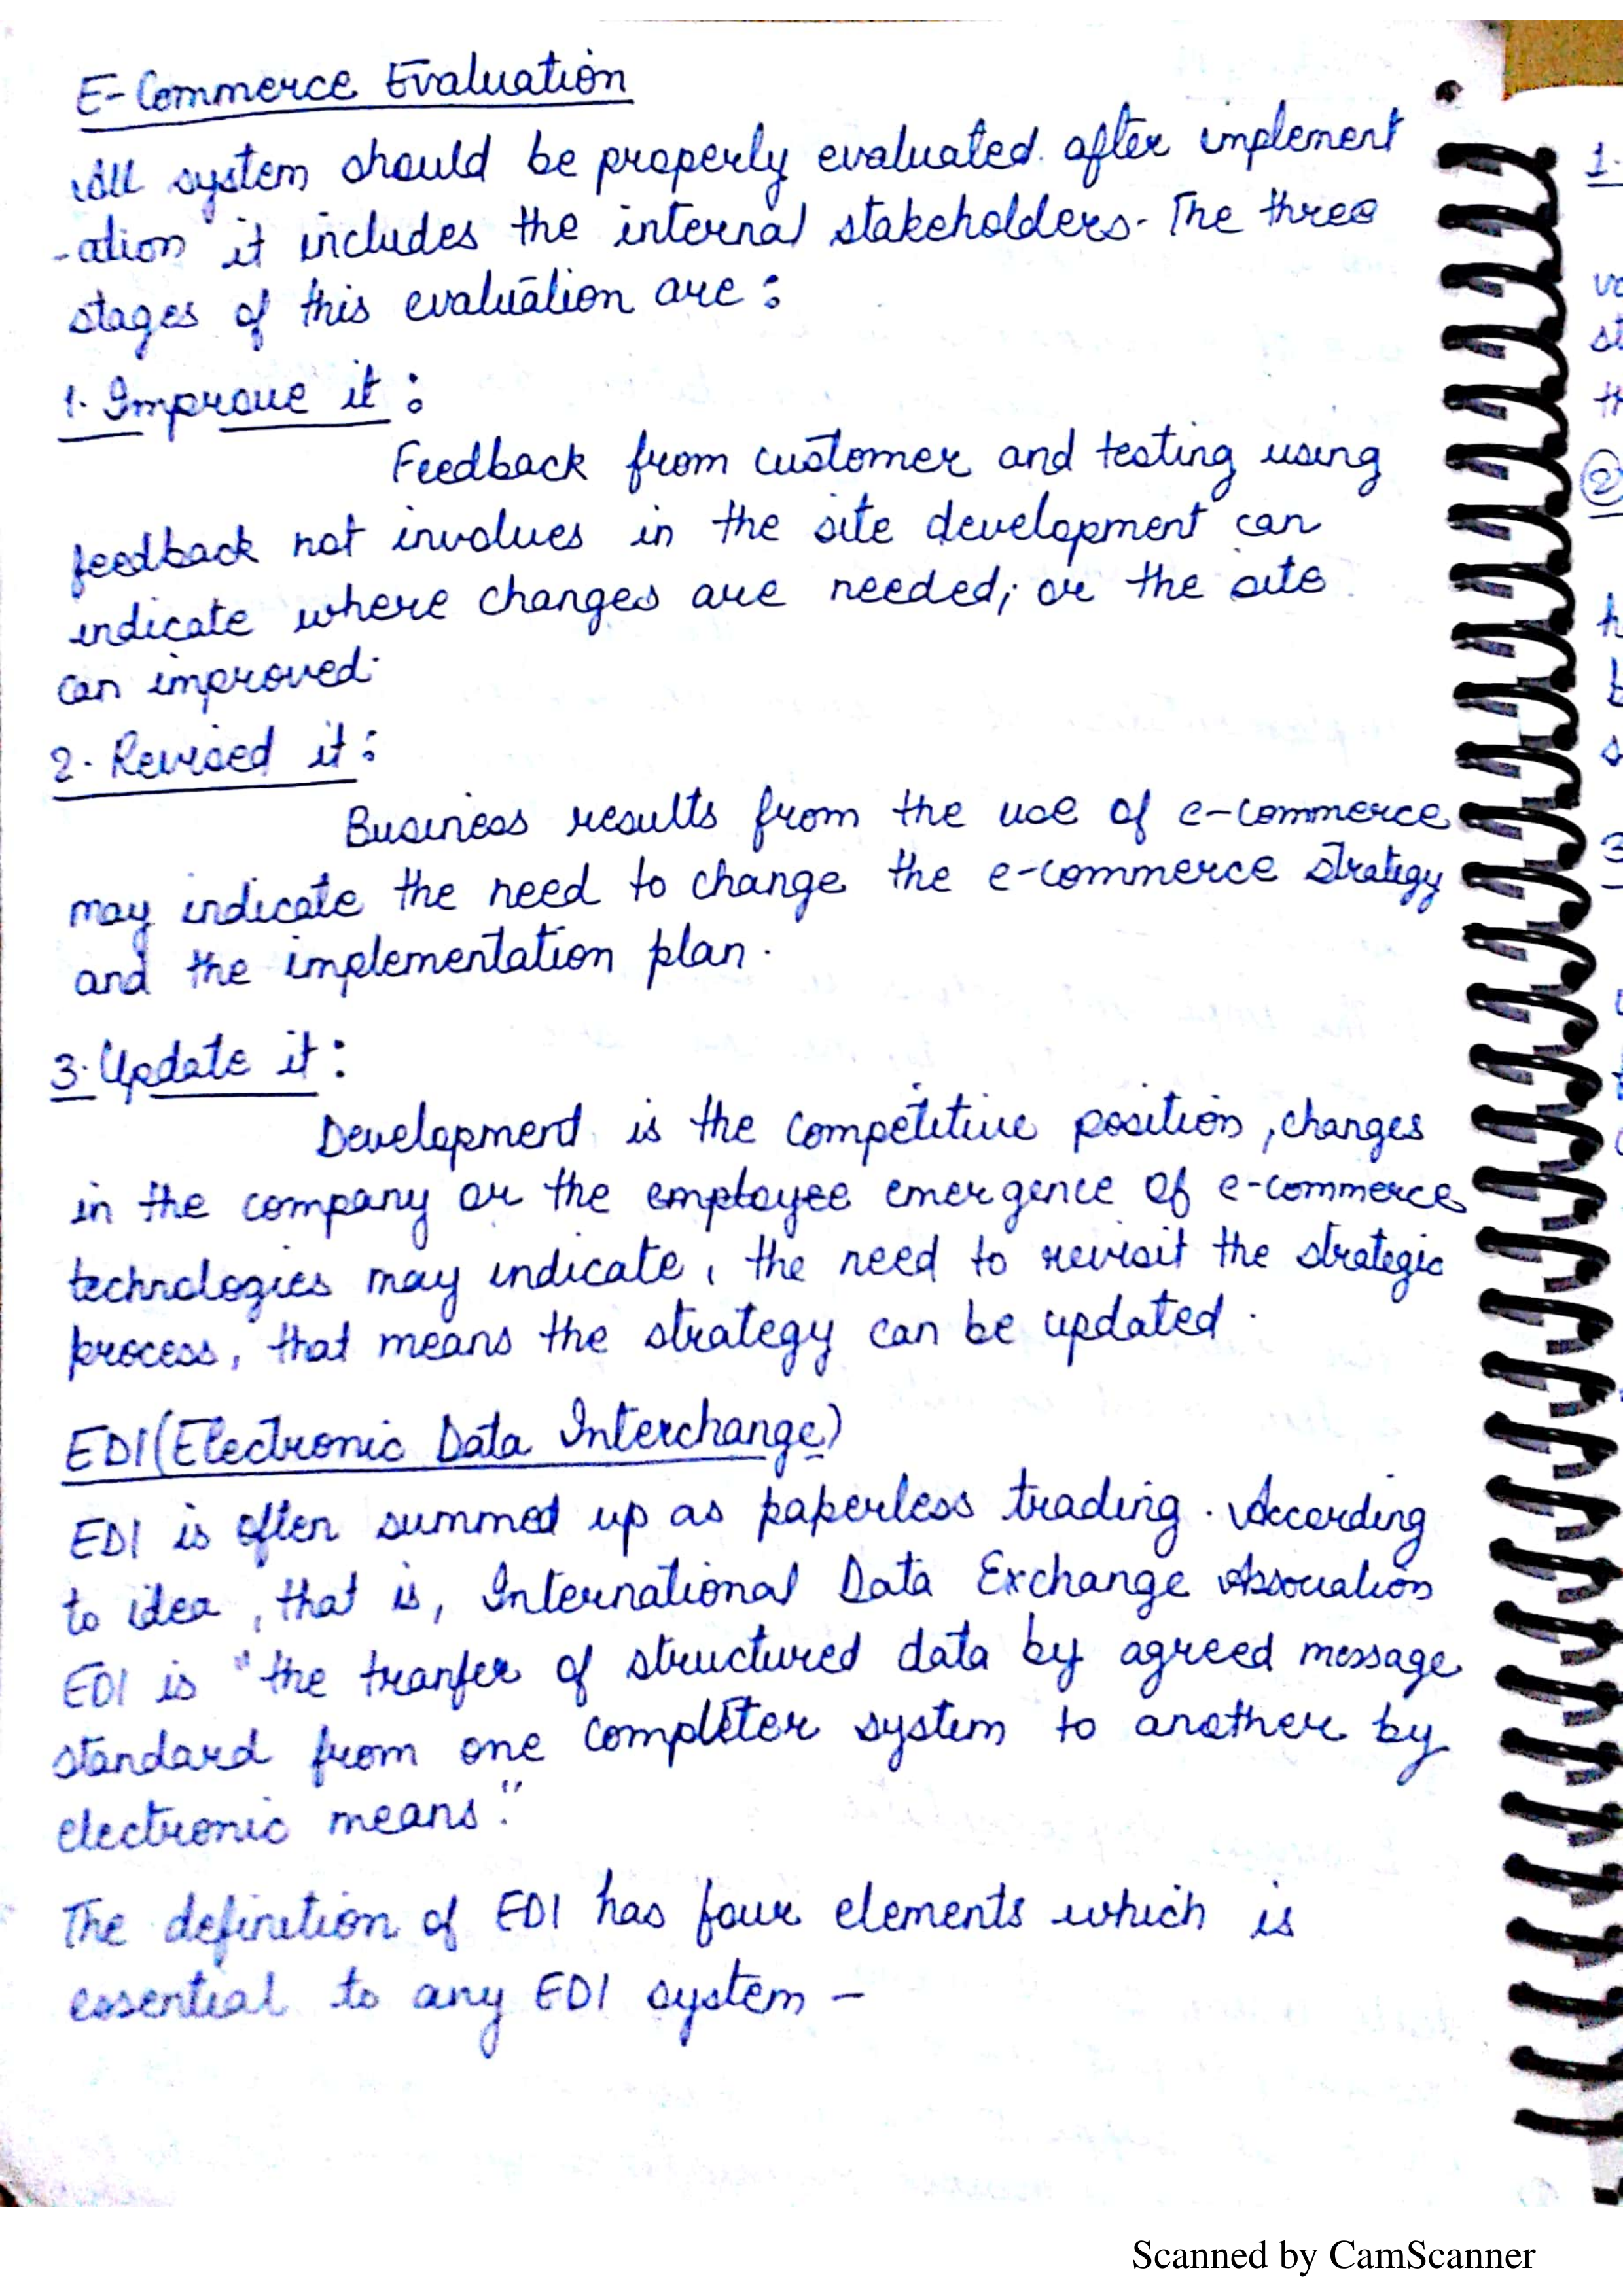 E-Commerce Evaluation
All system should be properly evaluated after implement
-ation it includes the internal stakeholders. The three
stages of this evaluation are :
1. Improve it :
Feedback from customer and testing using
feedback not involves in the site development can
indicate where changes are needed; or the site
can improved.
2. Revised it :
Business results from the use of e-commerce
may indicate the need to change the e-commerce strategy
and the implementation plan.
3. Update it :
Development is the competitive position, changes
in the company or the employee emergence of e-commerce
technologies may indicate, the need to revisit the strategic
process, that means the strategy can be updated.
EDI (Electronic Data Interchange)
EDI is often summed up as paperless trading. According
to idea, that is, International Data Exchange Association
EDI is "the tranfer of structured data by agreed message
standard from one computer system to another by
electronic means."
The definition of EDI has four elements which is
essential to any EDI system -
Scanned by CamScanner